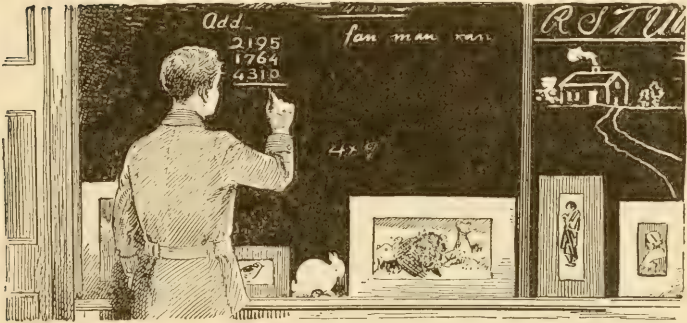 Add
2195
1764
4310
fan man ran
4x9
R S T U